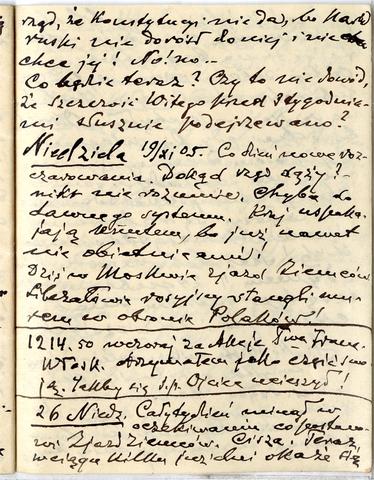 rząd, że Konstytucyi nie da, bo Naród
ruski nie dorósł do niej i nie
chce jej! No! no –
Co będzie teraz? Czy to nie dowód,
że szczerość Witego przed 3 tygodnia-
mi słusznie podejrzewano?
Niedziela 19/XI 05. Co dzień nowe roz-
czarowania. Dokąd rząd dąży? –
nikt nie rozumie. Chyba do
dawnego systemu. Kraj uspaka-
jają, bo już nawet
nie obietnicami!
Dziś w Moskwie zjazd Ziemców
Liberałowie rosyjscy stanęli mu-
rem w obronie Polaków!
1214.50 wczoraj za Akcje Tow. Franc.
Włosk. otrzymałem jako częściową
. Jakby się ś.p. Ojciec ucieszył!
26 Niedz. Cały tydzień minął w
oczekiwaniu co postano-
wi Zjazd Ziemców. Cisza. Teraz
w ciągu kilku dni okaże się